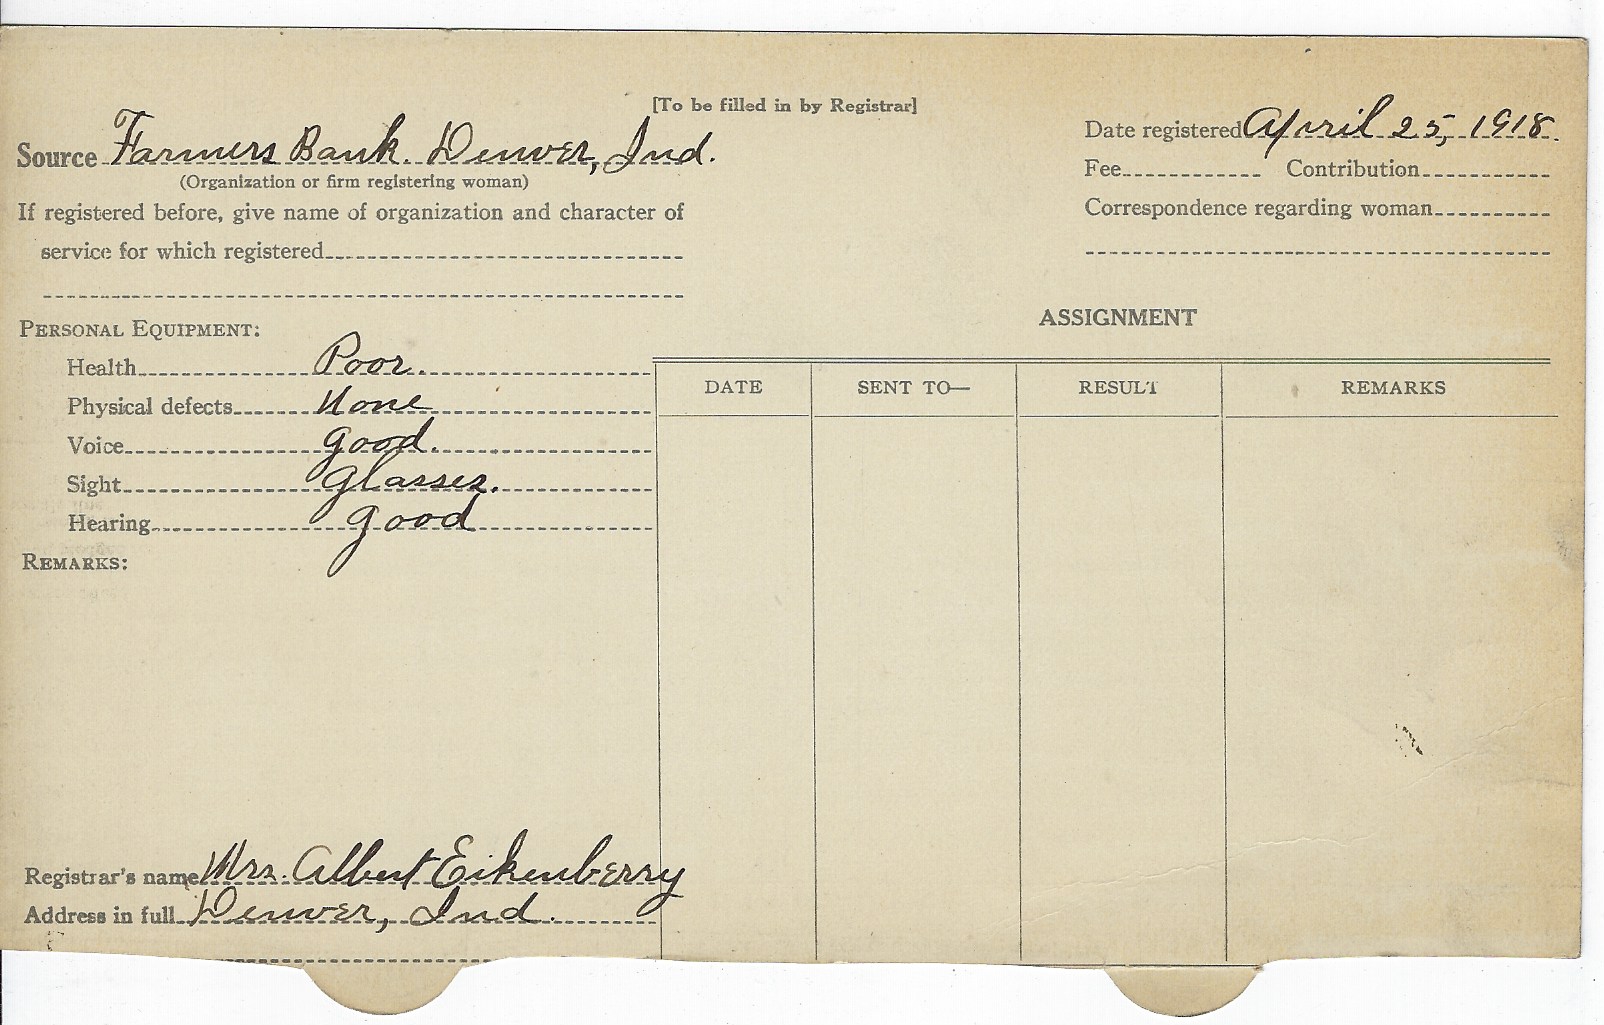 [To be filled in by Registrar]
Source Farmers Bank. Denver, Ind.
(Organization or firm registering woman)
If registered before, give name of organization and character of
service for which registered
Date registered April 25, 1918.
Fee Contribution
Correspondence regarding woman
PERSONAL EQUIPMENT:
Health Poor.
Physical defects None
Voice good.
Sight Glasses.
Hearing good
REMARKS:
ASSIGNMENT
DATE SENT TO— RESULT REMARKS
Registrar's name Mrs. Albert Eikenberry
Address in full Denver, Ind.